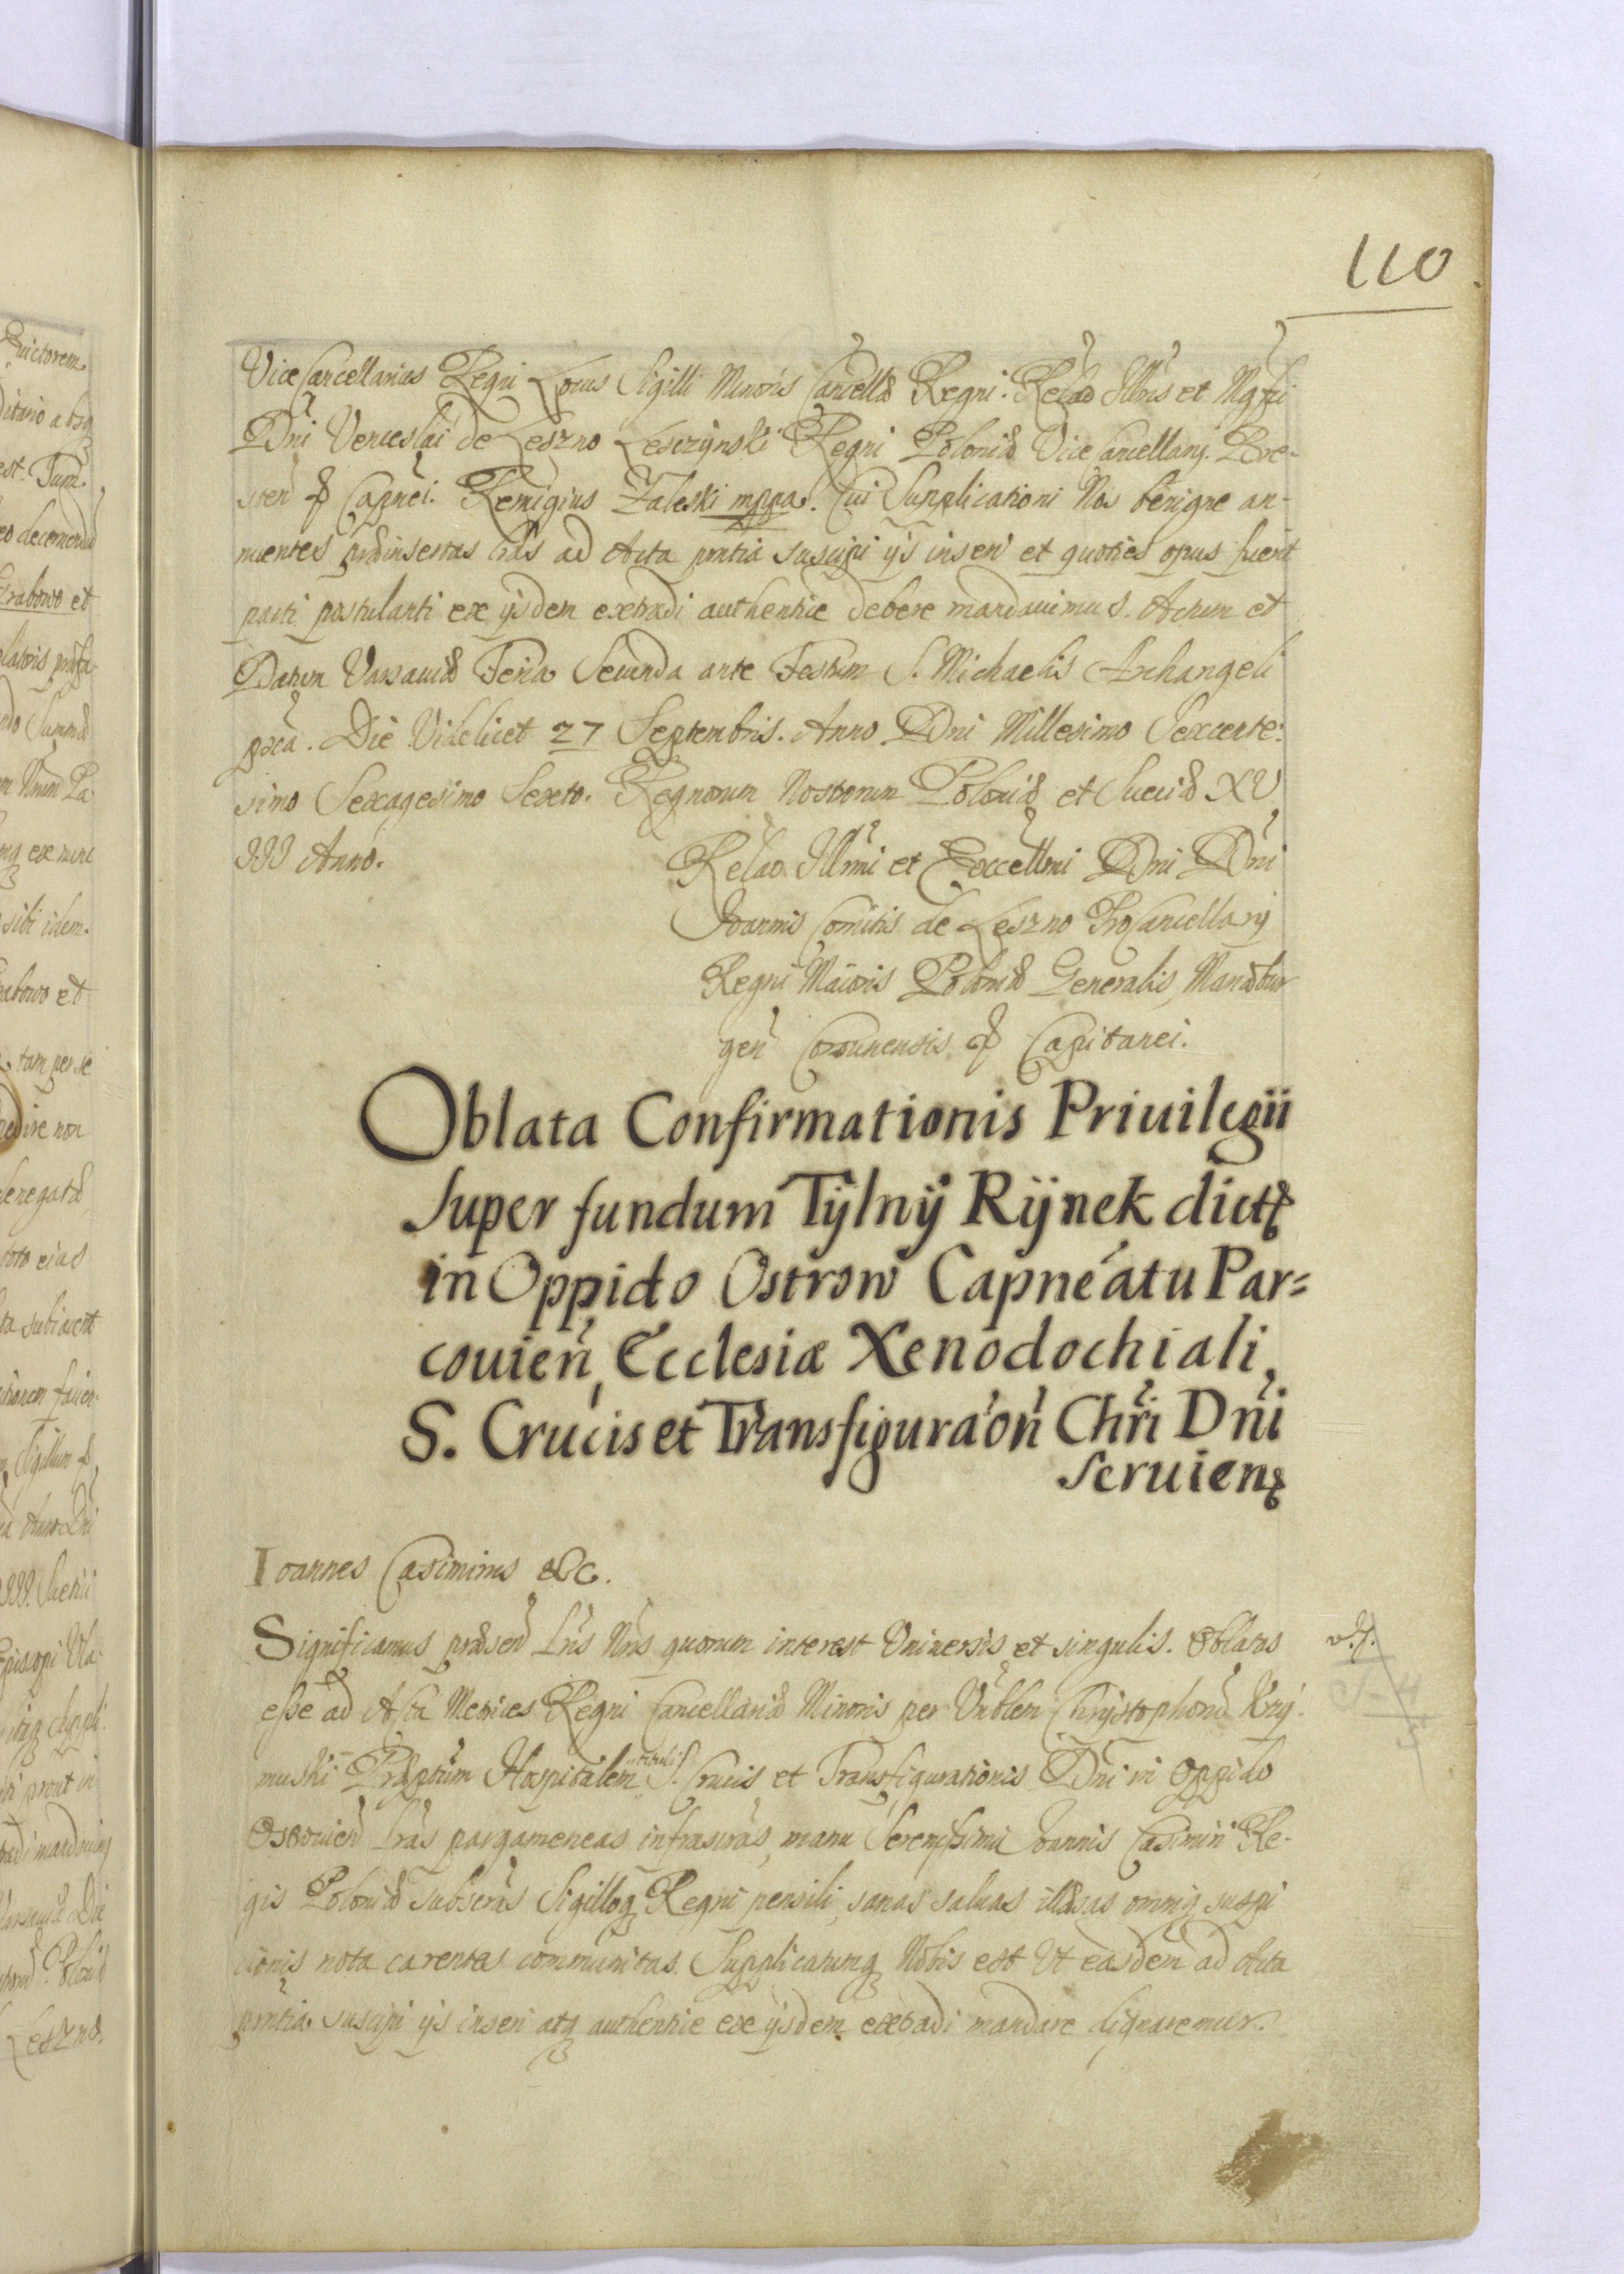 110
ViceCancellarius Regni Locus Sigilli Minoris Cancellæ Regni. Relao Illris et Mgfci
Dni Venceslai de Leszno Lesczÿnski Regni Poloniæ ViceCancellarij. Bre-
sten & Capnei. Remigius Zaleski mppa. Cui Supplicationi Nos benigne an-
nuentes præinsertas lras ad Acta pntia suscipi ijs inseri et quoties opus fuerit
parti postulanti ex ijsdem extradi authentice debere mandauimus. Actum et
Datum Varsauiæ Feria Secunda ante Festum S. Michaelis Archangeli
pxa. Die Videlicet 27 Septembris. Anno Dni Millesimo Sexcente-
simo Sexagesimo Sexto. Regnorum Nostrorum Poloniæ et Sueciæ XV
III Anno.
Relao Illmi et Excellmi Dni Dni
Joannis Comitis de Leszno ProCancellarij
Regni Maioris Poloniæ Generalis, Mariæbur
gen Corsunensis & Capitanei.
Oblata Confirmationis Priuilegii
super fundum Tÿlnÿ Rÿnek dict
in Oppido Ostrow Capneatu Par=
couien, Ecclesiæ Xenodochiali,
S. Crucis et Transfiguraon Chri Dni
seruien
Ioannes Casimirus &c.
Significamus præsen Lris Nris quorum interest Vniuersis et singulis. Oblatas
esse ad Acta Metrices Regni Cancellariæ Minoris per Vnblem Chrÿstophorum Krÿ-
muski Præptum Hospitalem tituli S. Crucis et Transfigurationis Dni in Oppido
Ostrouien lras pargameneas infrascras, manu Serenissimi Joannis Casimiri Re-
gis Poloniæ subscras Sigilloq Regni pensili, sanas saluas illæsas omniq suspi
cionis nota carentes communitas. Supplicatumq Nobis est Vt easdem ad Acta
pntia suscipi ijs inseri atq authentice ex ijsdem extradi mandare dignaremur.